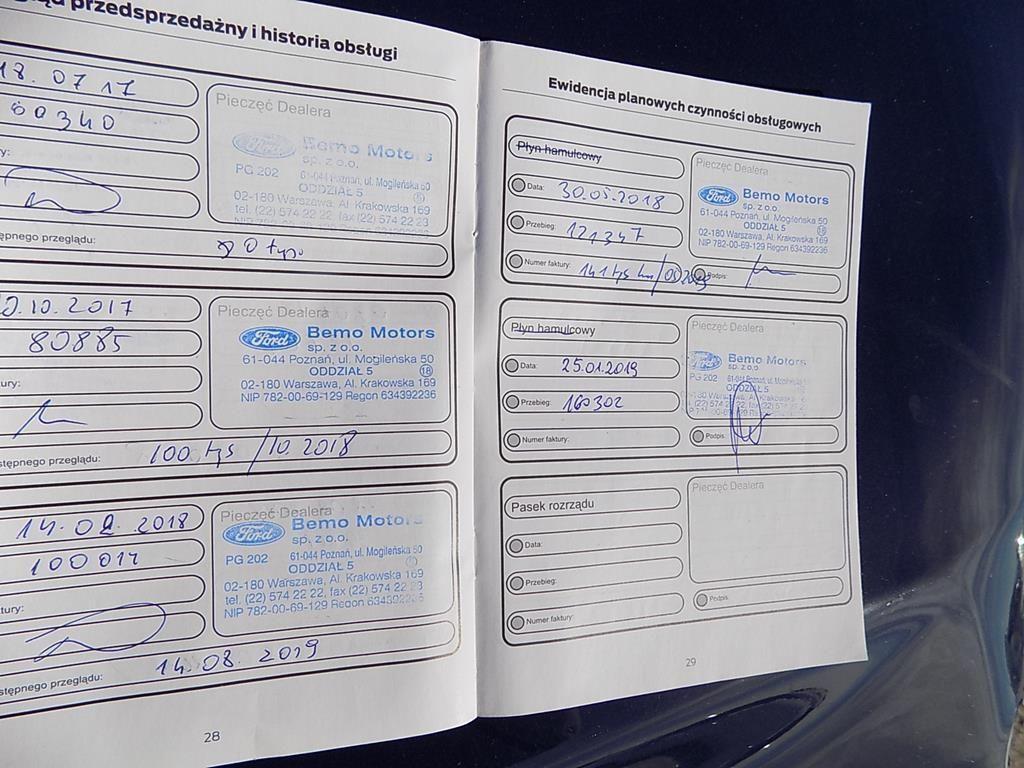 ąd przedsprzedażny i historia obsługi
18.07.17
60340
ry:
Pieczęć Dealera
Ford Bemo Motors
sp. z o.o.
PG 202 61-044 Poznań, ul. Mogileńska 50
ODDZIAŁ 5
02-180 Warszawa, Al. Krakowska 169
tel. (22) 574 22 22, fax (22) 574 22 23
tępnego przeglądu:
.10.2017
80885
tury:
Pieczęć Dealera
Ford Bemo Motors
sp. z o.o.
61-044 Poznań, ul. Mogileńska 50
ODDZIAŁ 5
18
02-180 Warszawa, Al. Krakowska 169
NIP 782-00-69-129 Regon 634392236
stępnego przeglądu: 100 tys /10.2018
14.02.2018
100014
tury:
Pieczęć Dealera
Ford Bemo Motors
sp. z o.o.
PG 202 61-044 Poznań, ul. Mogileńska 50
ODDZIAŁ 5
02-180 Warszawa, Al. Krakowska 169
tel. (22) 574 22 22, fax (22) 574 22 23
NIP 782-00-69-129 Regon 634392236
stępnego przeglądu: 14.08.2019
28
Ewidencja planowych czynności obsługowych
Płyn hamulcowy
Data: 30.05.2018
Przebieg: 121347
Numer faktury: 141 tys km/05
Pieczęć Dealera
Ford Bemo Motors
sp. z o.o.
61-044 Poznań, ul. Mogileńska 50
ODDZIAŁ 5
18
02-180 Warszawa, Al. Krakowska 169
NIP 782-00-69-129 Regon 634392236
Podpis:
Płyn hamulcowy
Data: 25.01.2019
Przebieg: 160302
Numer faktury:
Pieczęć Dealera
Ford Bemo Motors
sp. z o.o.
PG 202 61-044 Poznań, ul. Mogileńska
ODDZIAŁ 5
Podpis:
Pasek rozrządu
Data:
Przebieg:
Numer faktury:
Pieczęć Dealera
Podpis:
29